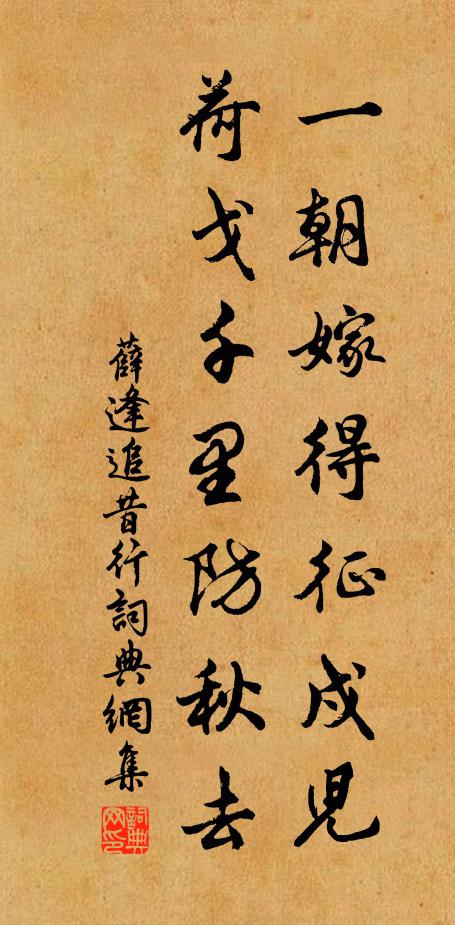 一朝嫁得征戍兒
荷戈千里防秋去
薛逢追昔行詞典網集
詞典網印